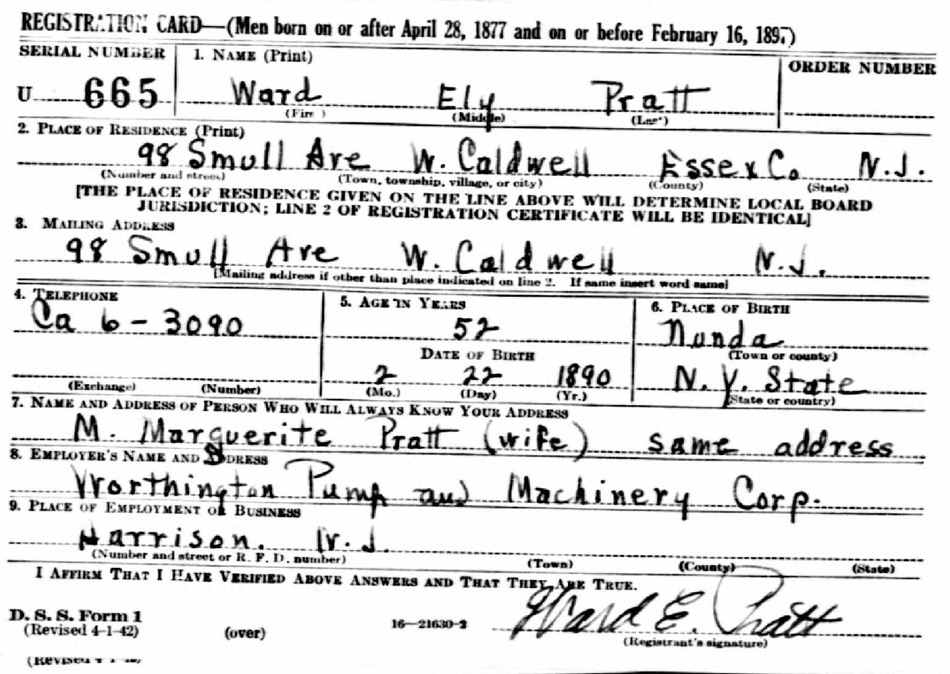 REGISTRATION CARD—(Men born on or after April 28, 1877 and on or before February 16, 1897)
SERIAL NUMBER
1. NAME (Print)
ORDER NUMBER
U 665
Ward Ely Pratt
(First) (Middle) (Last)
2. PLACE OF RESIDENCE (Print)
98 Smull Ave W. Caldwell Essex Co N.J.
(Number and street) (Town, township, village, or city) (County) (State)
[THE PLACE OF RESIDENCE GIVEN ON THE LINE ABOVE WILL DETERMINE LOCAL BOARD
JURISDICTION; LINE 2 OF REGISTRATION CERTIFICATE WILL BE IDENTICAL]
3. MAILING ADDRESS
98 Smull Ave W. Caldwell N.J.
[Mailing address if other than place indicated on line 2. If same insert word same]
4. TELEPHONE
Ca 6-3090
(Exchange) (Number)
5. AGE IN YEARS
52
DATE OF BIRTH
2 22 1890
(Mo.) (Day) (Yr.)
6. PLACE OF BIRTH
Nunda
(Town or county)
N.Y. State
(State or country)
7. NAME AND ADDRESS OF PERSON WHO WILL ALWAYS KNOW YOUR ADDRESS
M. Marguerite Pratt (wife) same address
8. EMPLOYER'S NAME AND ADDRESS
Worthington Pump and Machinery Corp.
9. PLACE OF EMPLOYMENT OR BUSINESS
Harrison. N.J.
(Number and street or R. F. D. number) (Town) (County) (State)
I AFFIRM THAT I HAVE VERIFIED ABOVE ANSWERS AND THAT THEY ARE TRUE.
D. S. S. Form 1
(Revised 4-1-42) (over) 16—21630-2
Ward E. Pratt
(Registrant's signature)
(Revised 4-1-42)